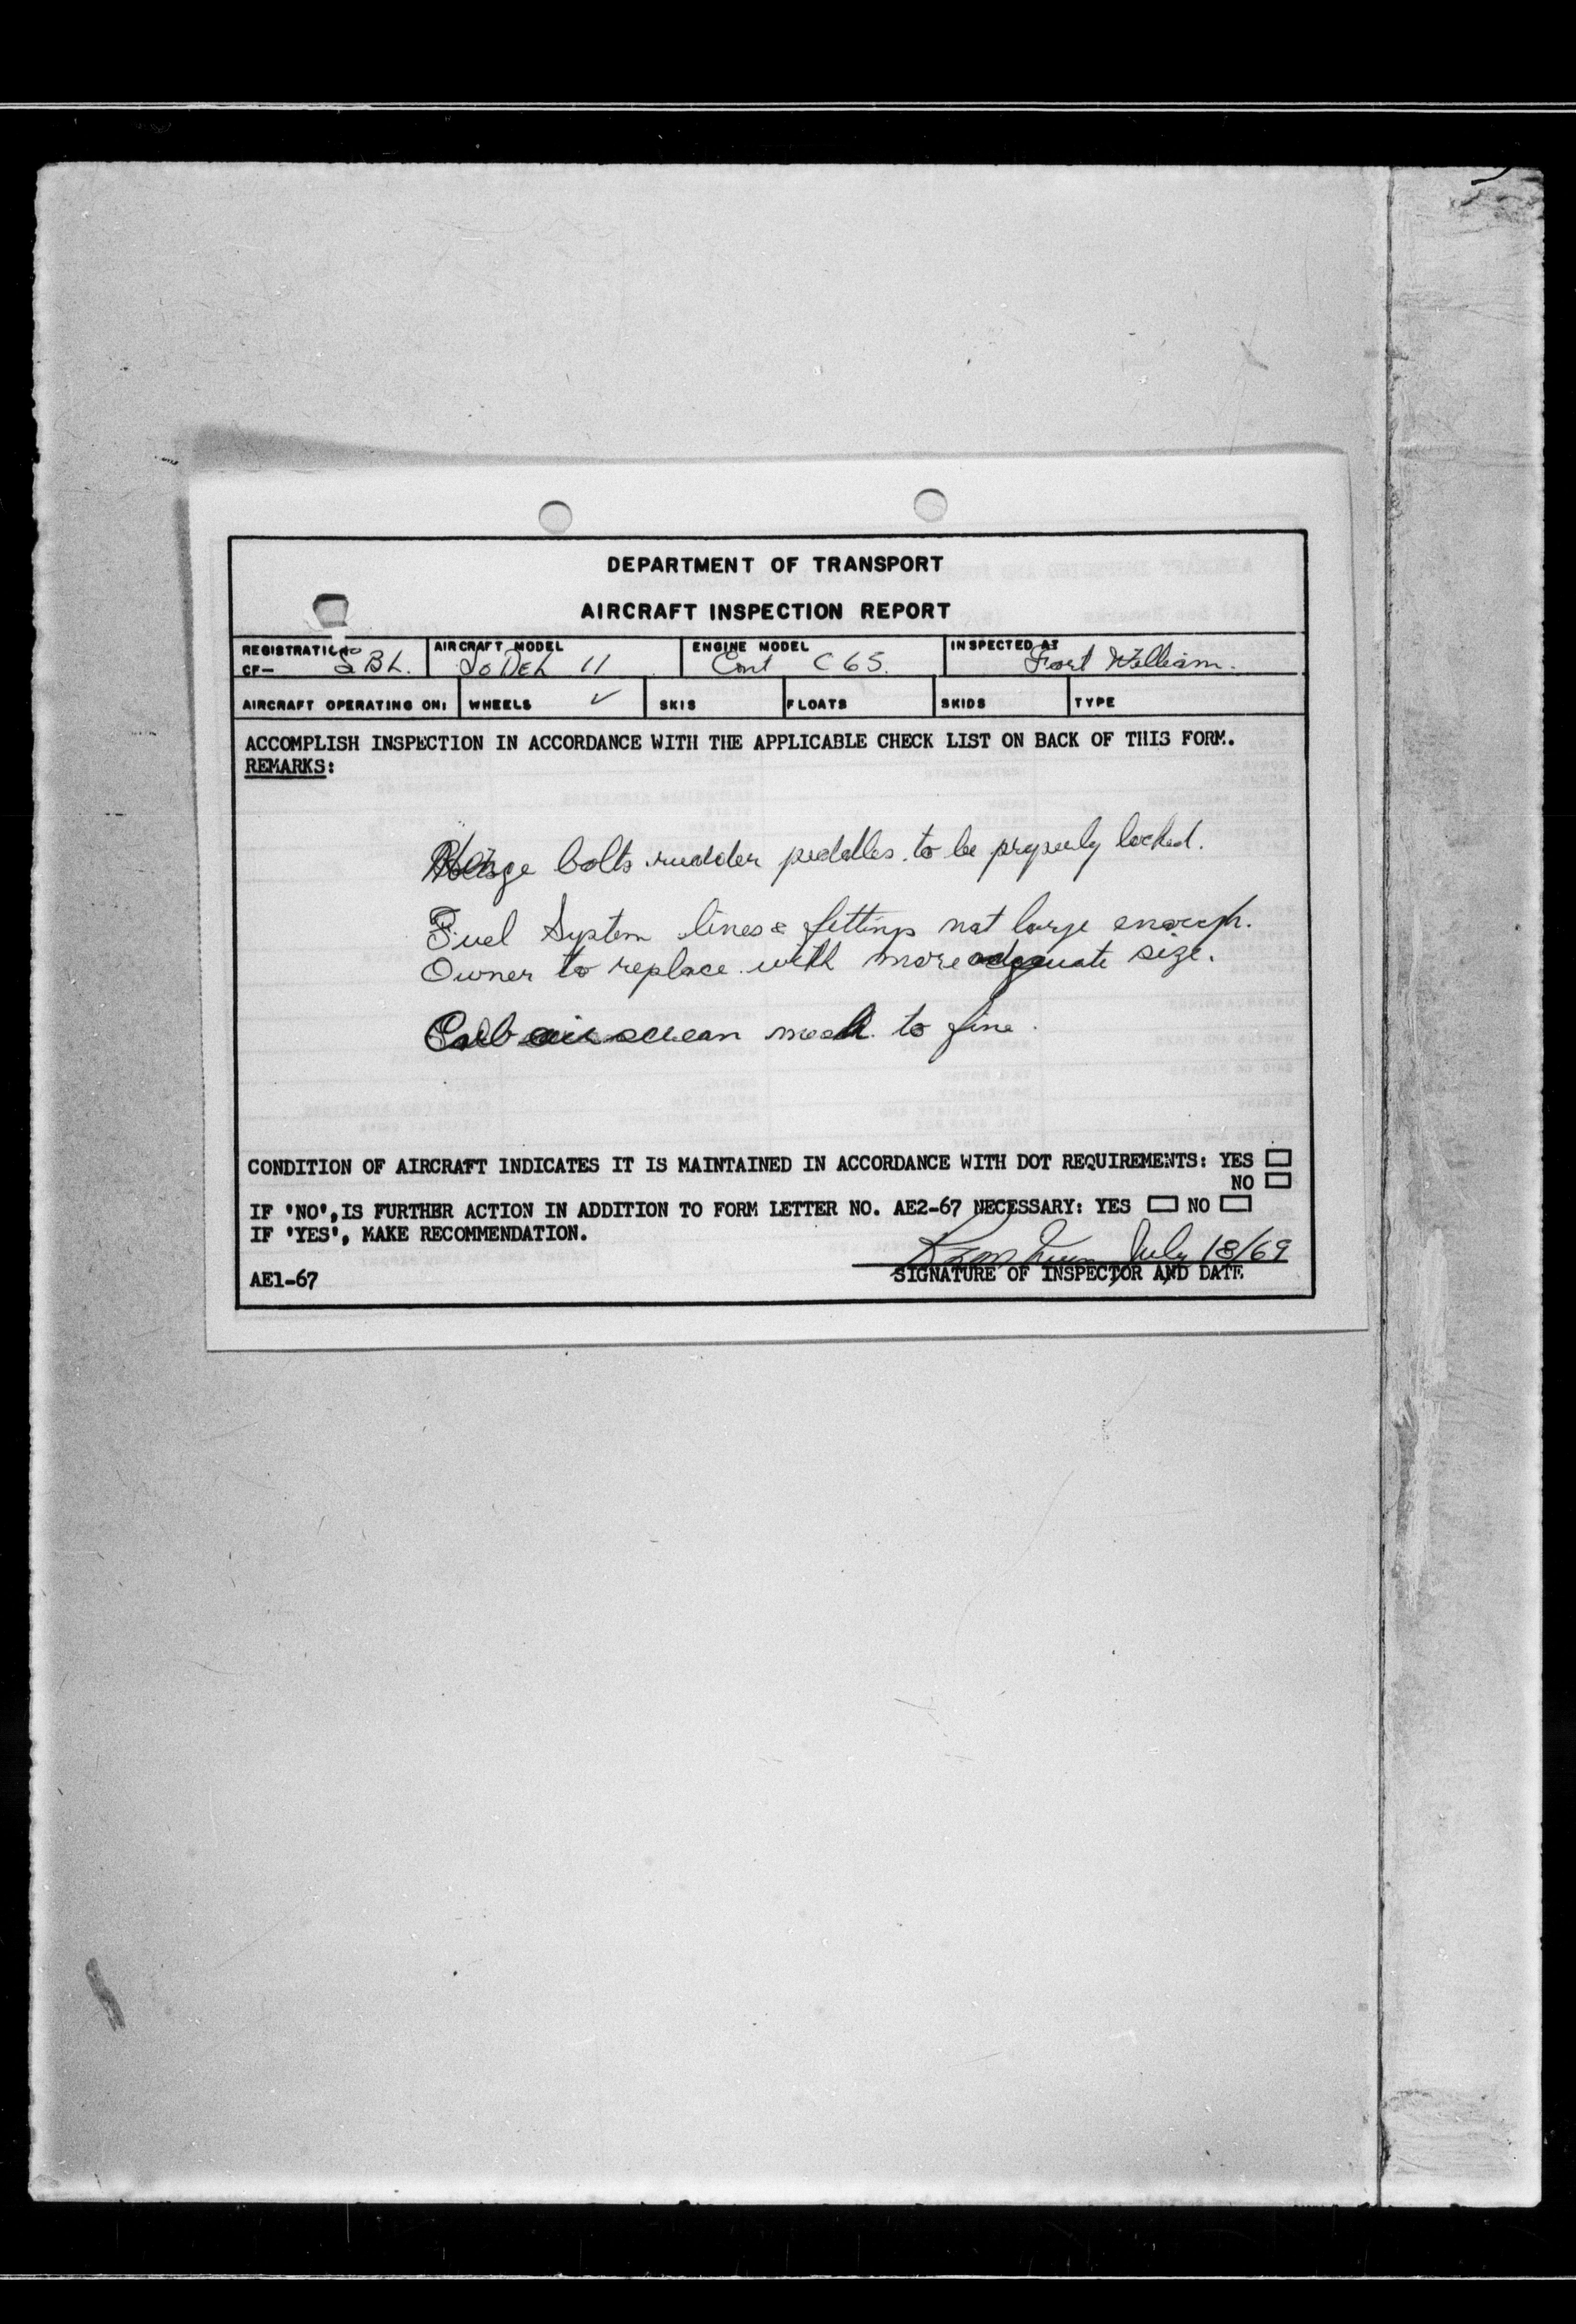 DEPARTMENT OF TRANSPORT
AIRCRAFT INSPECTION REPORT
REGISTRATION AIRCRAFT MODEL ENGINE MODEL INSPECTED AT
CF- SBL. JoDEL 11 Cont C 65. Fort William.
AIRCRAFT OPERATING ON: WHEELS ✓ SKIS FLOATS SKIDS TYPE
ACCOMPLISH INSPECTION IN ACCORDANCE WITH THE APPLICABLE CHECK LIST ON BACK OF THIS FORM.
REMARKS:
Hinge bolts rudder peddles to be properly locked.
Fuel System lines & fittings not large enough.
Owner to replace with more adequate size.
Carb air screan mesh to fine.
CONDITION OF AIRCRAFT INDICATES IT IS MAINTAINED IN ACCORDANCE WITH DOT REQUIREMENTS: YES
NO
IF 'NO', IS FURTHER ACTION IN ADDITION TO FORM LETTER NO. AE2-67 NECESSARY: YES NO
IF 'YES', MAKE RECOMMENDATION.
July 18/69
AE1-67 SIGNATURE OF INSPECTOR AND DATE